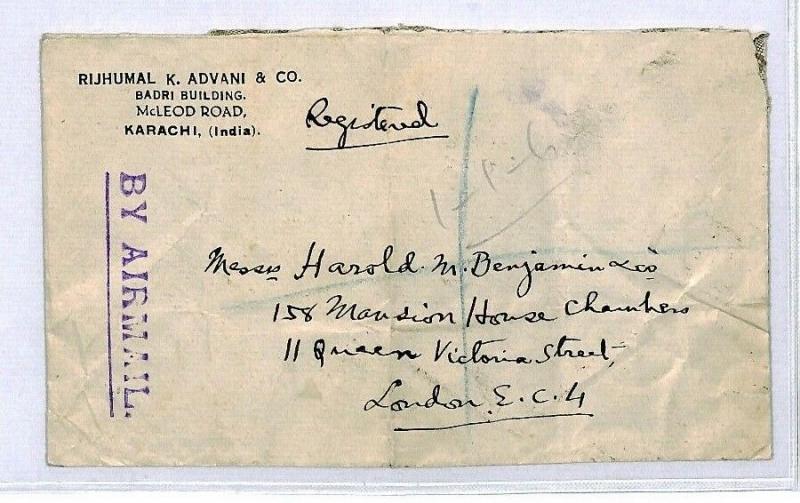 RIJHUMAL K. ADVANI & CO.
BADRI BUILDING.
McLEOD ROAD,
KARACHI, (India).
Registered
1-9-6
BY AIRMAIL.
Messrs Harold. M. Benjamin & Co
158 Mansion House Chambers
11 Queen Victoria Street,
London. E. C. 4